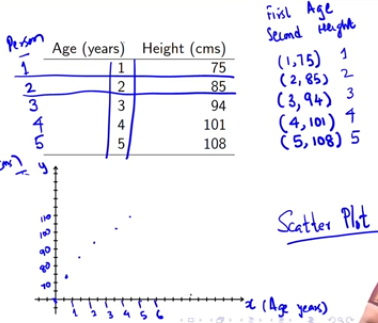 Person
Age (years) Height (cms)
1 1 75
2 2 85
3 3 94
4 4 101
5 5 108
First Age
Second Height
(1,75) 1
(2,85) 2
(3,94) 3
(4,101) 4
(5,108) 5
Scatter Plot
y
110
100
90
80
70
1 2 3 4 5 6
x (Age years)